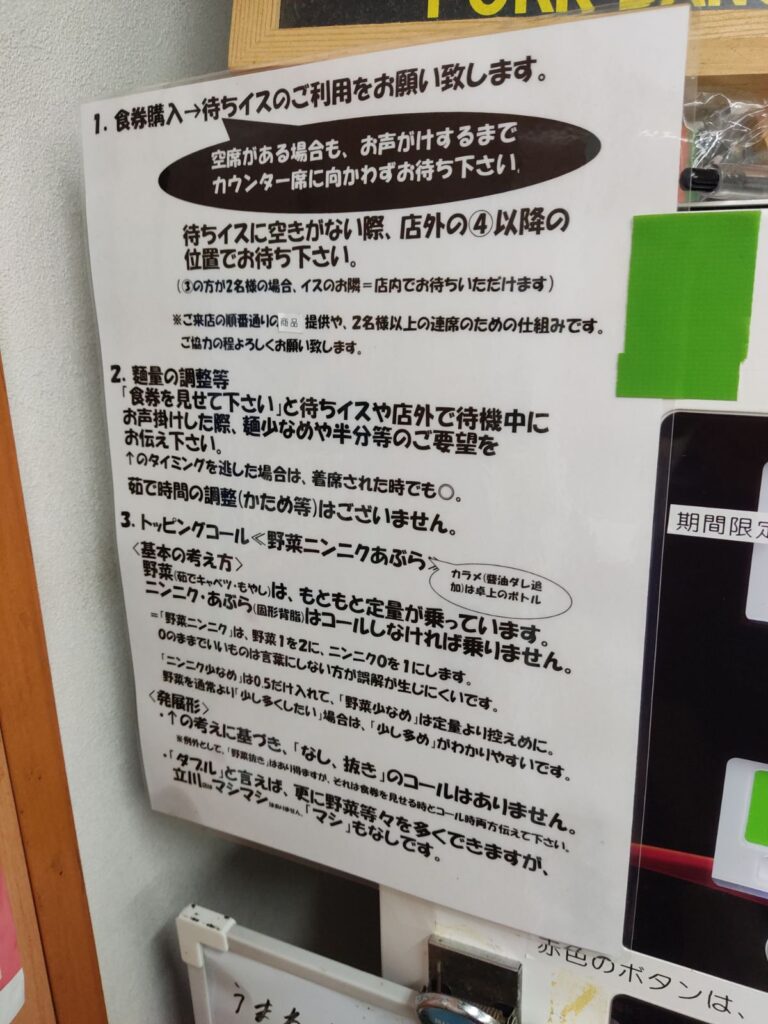 1. 食券購入→待ちイスのご利用をお願い致します。
空席がある場合も、お声がけするまで
カウンター席に向かわずお待ち下さい。
待ちイスに空きがない際、店外の④以降の
位置でお待ち下さい。
(③の方が2名様の場合、イスのお隣=店内でお待ちいただけます)
※ご来店の順番通りの商品提供や、2名様以上の連席のための仕組みです。
ご協力の程よろしくお願い致します。
2. 麺量の調整等
「食券を見せて下さい」と待ちイスや店外で待機中に
お声掛けした際、麺少なめや半分等のご要望を
お伝え下さい。
↑のタイミングを逃した場合は、着席された時でも○。
茹で時間の調整(かため等)はございません。
3. トッピングコール≪野菜ニンニクあぶら≫
カラメ(醤油ダレ追
加)は卓上のボトル
〈基本の考え方〉
野菜(茹でキャベツ・もやし)は、もともと定量が乗っています。
ニンニク・あぶら(固形背脂)はコールしなければ乗りません。
=「野菜ニンニク」は、野菜1を2に、ニンニク0を1にします。
0のままでいいものは言葉にしない方が誤解が生じにくいです。
「ニンニク少なめ」は0.5だけ入れて、「野菜少なめ」は定量より控えめに。
野菜を通常より「少し多くしたい」場合は、「少し多め」がわかりやすいです。
〈発展形〉
・↑の考えに基づき、「なし、抜き」のコールはありません。
※例外として、「野菜抜き」はあり得ますが、それは食券を見せる時とコール時両方伝えて下さい。
・「ダブル」と言えば、更に野菜等々を多くできますが、
立川店はマシマシはありません。「マシ」もなしです。
期間限定
赤色のボタンは、